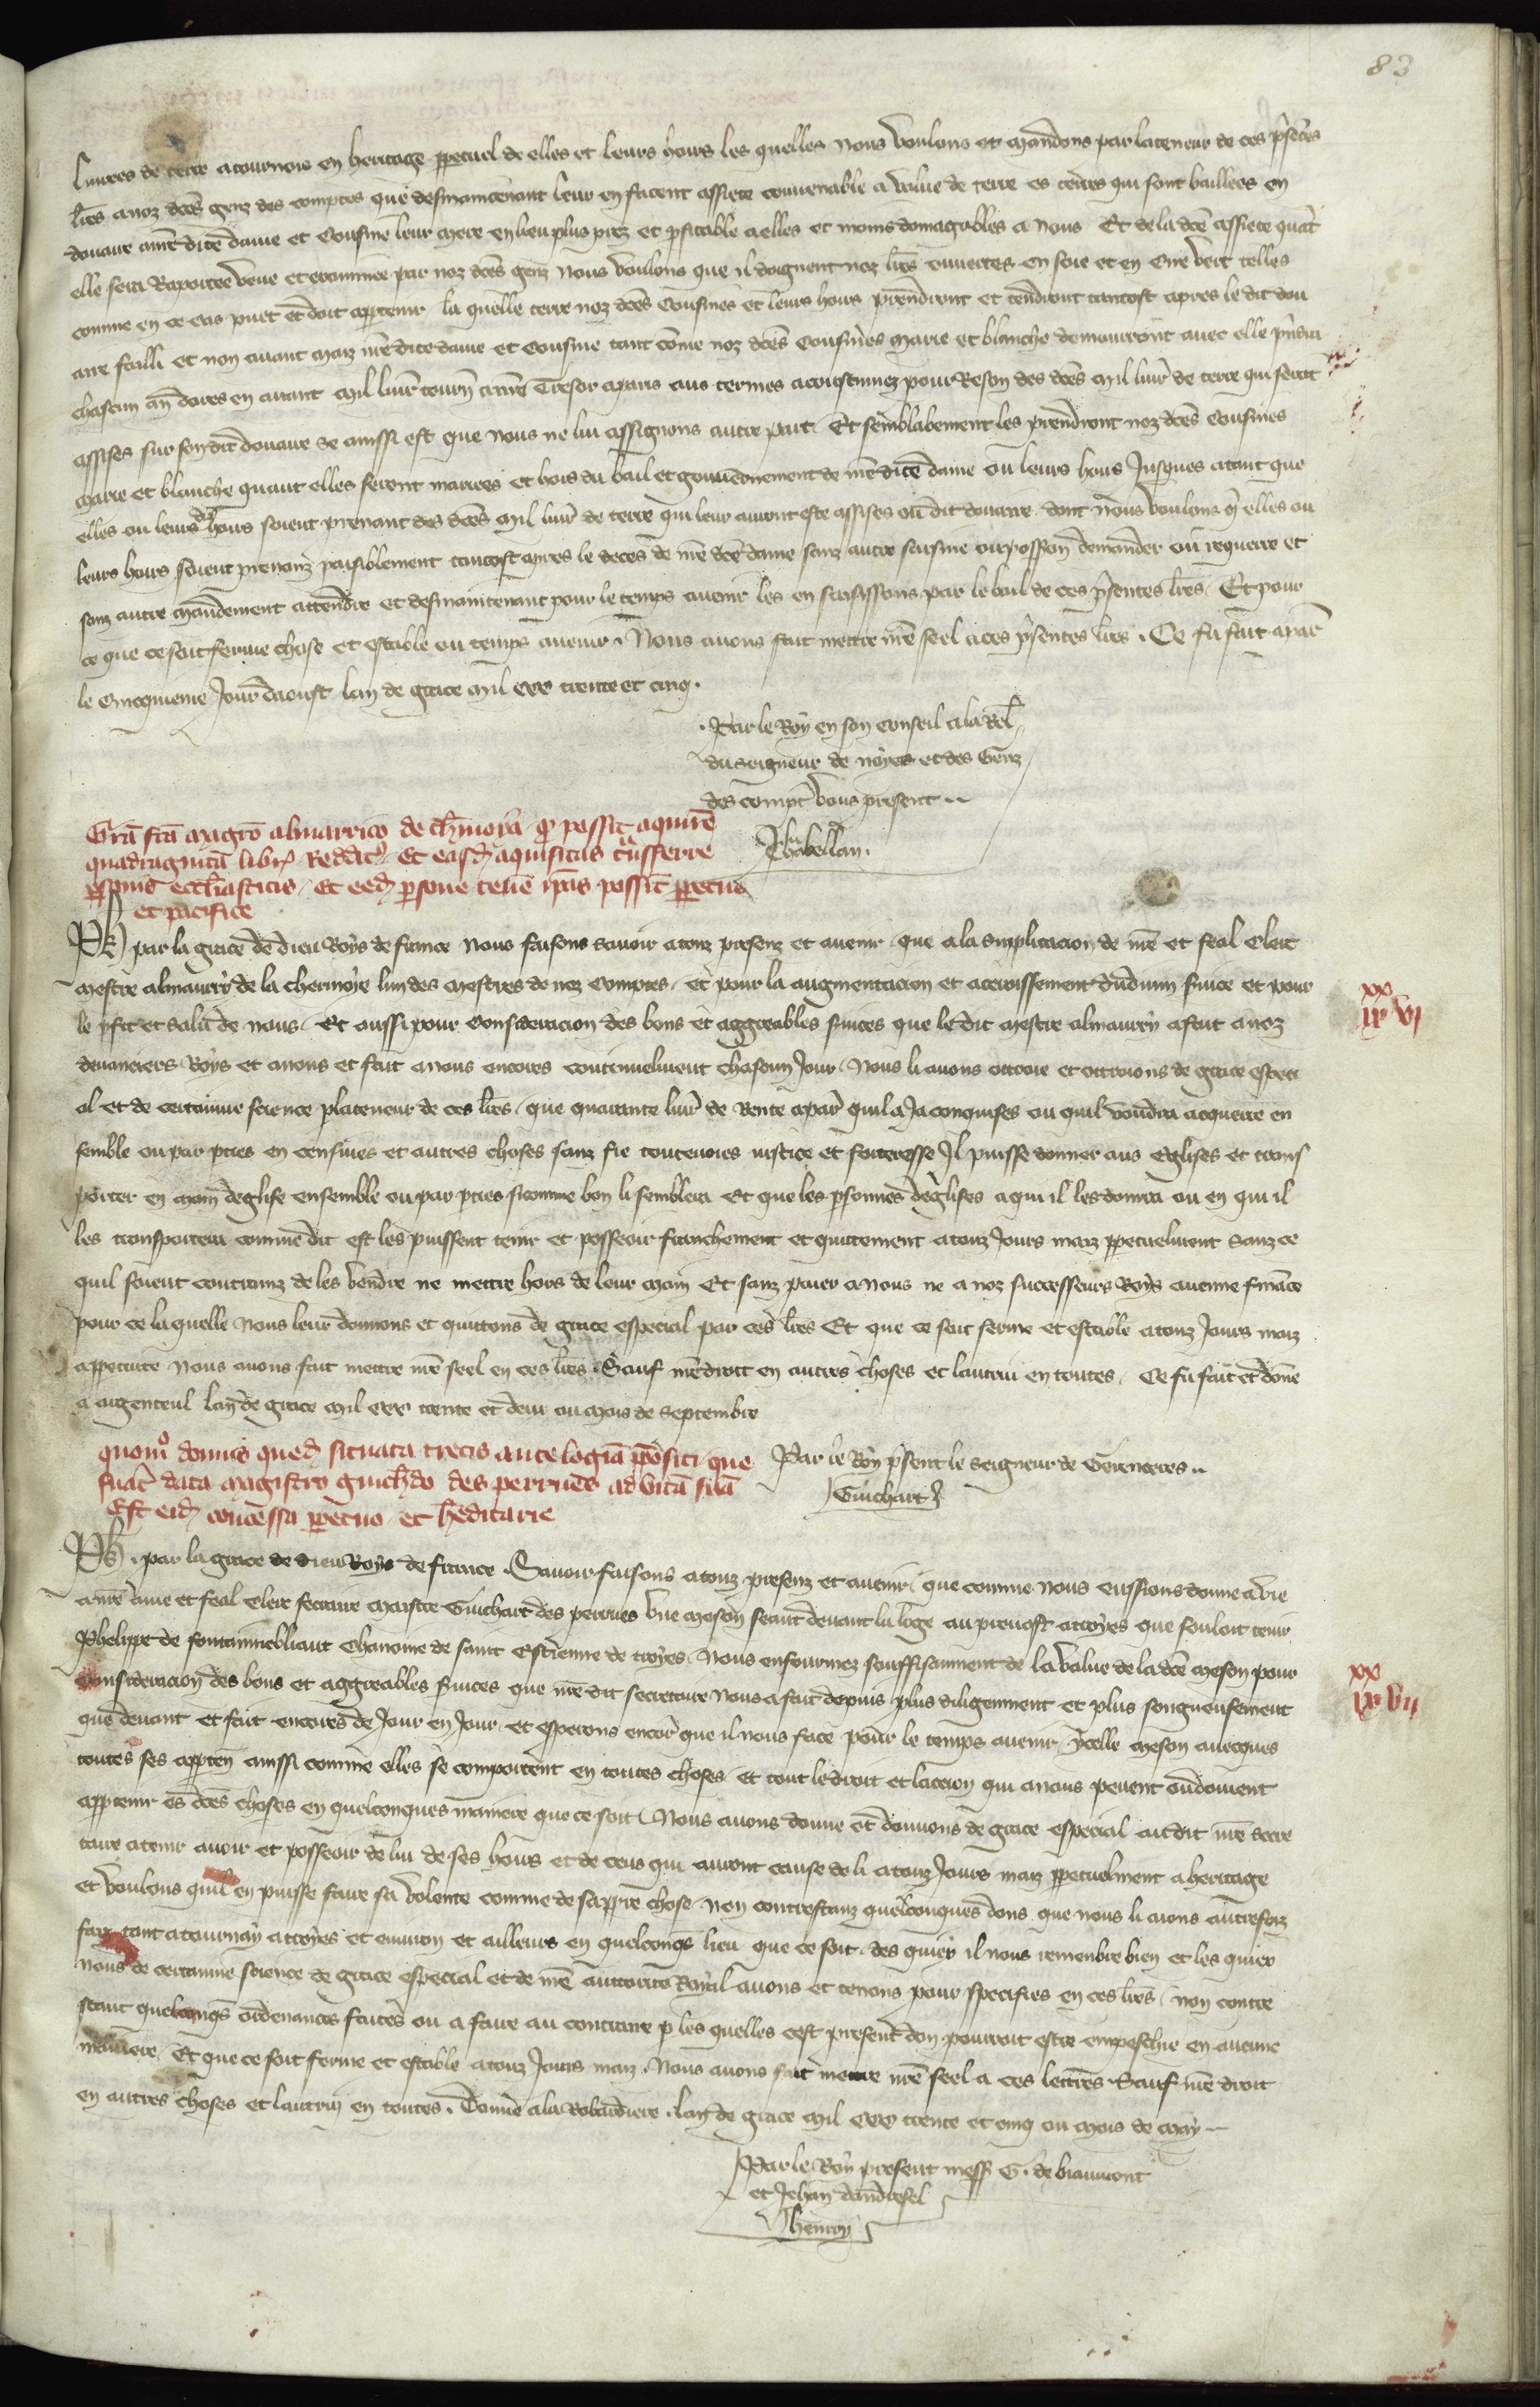 83
livrees de terre a tournois en heritage ppetuel de elles et leurs hoirs les quelles nous voulons et mandons par la teneur de ces pñtes
lres a noz dces genz des comptes que des maintenant leur en facent assiete convenable a value de terre es terres qui sont baillees en
douaire a nre dite dame et cousine leur mere en lieu plus prez et pfitable a elles et moins domagables a nous Et de la dce assiete quãt
elle sera raportee veue et examinee par noz dces genz nous voulons que il doignent noz lres ouvertes en soie et en cire vert telles
comme en ce cas puet et doit apptenir la quelle terre noz dces cousines et leurs hoirs prendront et tendront tantost apres le dit dou
aire failli et non avant maiz nre dite dame et cousine tant cõme noz dces cousines marie et blanche demourront avec elle pñdra
chascun an dores en avant mil livr tourn a nre tresor a paris aus termes acoustumez pour reson des dces mil livr de terre qui seront
assises sur son dit douaire se ainssi est que nous ne lui assignons autre part Et semblablement les prendront noz dces cousines
marie et blanche quant elles seront mariees et hors du bail et gouvernement de nre dite dame ou leurs hoirs jusques a tant que
elles ou leurs diz hoirs soient prenant des dces mil livr de terre qui leur auront este assises ou dit douaire dont nous voulons q elles ou
leurs hoirs soient prenanz paisiblement tantost apres le deces de nre dce dame sanz autre saisine ou possion demander ou requerre et
sanz autre mandement attendre et des maintenant pour le temps avenir les en saisissons par le bail de ces pñsentes lres Et pour
ce que ce soit ferme chose et estable ou temps avenir. Nous avons fait mettre nre seel a ces pñsentes lres. Ce fu fait a par
le cincquieme jour daoust lan de grace mil ccc trente et cinq.
Par le Roy en son conseil a la rel
du seigneur de noyers et des Genz
des compt vous present
Ja. Chabellan.
Grã fcã magrõ almarrico de chmoya q possit aquirẽ
quadraginta libr reddit Et easd aquisitas trãsferre
psonis ecclesiasticis Et eed psone tenẽ ipãs possint ppetuo
et pacifice
Ph par la grace de dieu Roys de france nous faisons savoir a touz presenz et avenir que a la supplicacion de nre et feal clerc
mestre almaurry de la chermoye lun des mestres de noz comptes et pour la augmentacion et acroissement du divin svice et pour
le pfit et salut de nous Et aussi pour consideracion des bons et aggreables svices que le dit mestre almaurry a fait a noz
devanciers Roys et a nous et fait a nous encores continuelment chascun jour Nous li avons ottroie et ottroions de grace especi
al et de certaine science p la teneur de ces lres que quarante livr de rente a par quil a ja conquises ou quil voudra acquerre en
semble ou par pties en censives et autres choses sanz fie toutevoies justice et forteresse Il puisse donner aus eglises et trans
porter en main deglise ensemble ou par pties si comme bon li semblera Et que les psonnes deglises a qui il les donra ou en qui il
les transportera comme dit est les puissent tenir et posseoir franchement et quittement a touz jours maiz ppetuelment sanz ce
quil soient contrainz de les vendre ne mettre hors de leur main Et sanz paier a nous ne a noz successeurs Roys aucune finãce
pour ce la quelle nous leur donnons et quittons de grace especial par ces lres Et que ce soit ferme et estable a touz jours maiz
a ppetuite nous avons fait mettre nre seel en ces lres Sauf nre droit en autres choses et lautrui en toutes Ce fu fait et dõne
a argenteul lan de grace mil ccc trente et deux ou mois de septembre
xx
iiii vi
Par le Roy psent le seigneur de Gerencieres
Guichart
quomo domus qued situata trecis ante logiã ppositi que
fuat data magistro guichdo des perrues ad vitã suã
Est eid concessa ppetuo et heditarie
Ph. par la grace de dieu Roys de france. Savoir faisons a touz presenz et avenir que comme nous eussions donne a vie
a nre ame et feal clerc secraire maistre Guichart des perrues une meson seant devant la loge au prevost a troyes que souloit tenir
Phelippe de fontainnebliaut chanoine de saint estienne de troyes Nous enfourmez souffisanment de la value de la dce meson pour
consideracion des bons et aggreables svices que nre dit secretaire nous a fait depuis plus diligemment et plus songneusement
que devant et fait encores de jour en jour et esperons encor que il nous face pour le temps avenir ycelle meson avecques
toutes ses appten ainssi comme elles se comportent en toutes choses et tout le droit et laccion qui a nous pevent ou doivent
apptenir es dces choses en quelconques maniere que ce soit Nous avons donne et donnons de grace especial au dit nre secre
taire a tenir avoir et posseoir de lui de ses hoirs et de ceus qui auront cause de li a touz jours maiz ppetuelment a heritage
et voulons quil en puisse faire sa volente comme de sa ppre chose non contrestanz quelconques dons que nous li aions autresfoiz
faiz tant a tournay a troyes et environ et ailleurs en quelconqs lieu que ce soit des quiex il nous remenbre bien et les quiex
nous de certaine science de grace especial et de nre auttorite royal avons et tenons pour specifies en ces lres non contre
stant quelconqs ordenances faites ou a faire au contraire p les quelles cest present don pourroit estre empeschie en aucune
maniere Et que ce soit ferme et estable a touz jours maiz. Nous avons fait mettre nre seel a ces lettres Sauf nre droit
en autres choses et lautrui en toutes. Donne a la Robardiere. lan de grace mil ccc trente et cinq ou mois de may
xx
iiii vii
Par le Roy present mess G. de biaumont
et Jehan dandresel
Henrry